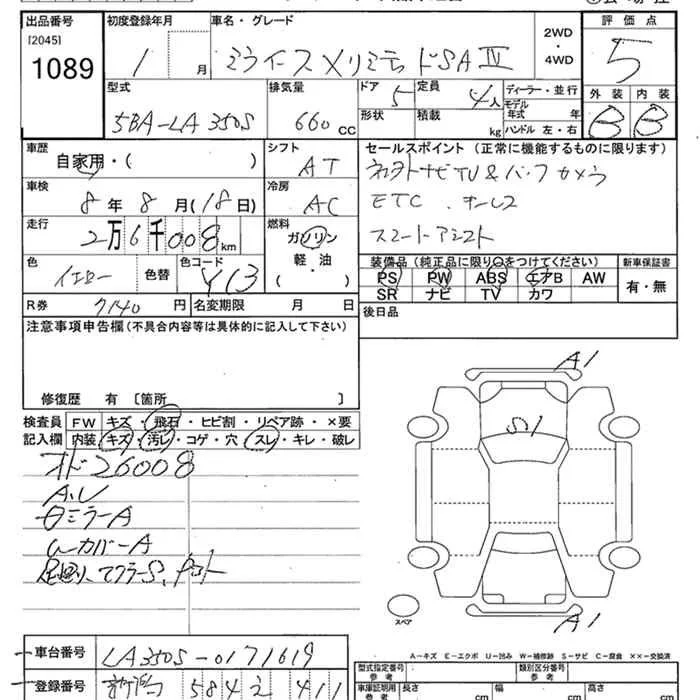 出品番号 初度登録年月 車名・グレード 2WD・4WD 評価点
[2045]
1089 1 月 ミライース Xリミテッド SAⅣ 5
型式 排気量 ドア 5 定員 4人 ディーラー・並行 外装 内装
5BA-LA350S 660 CC 形状 積載 kg モデル年式 年 B B
ハンドル 左・右
車歴 シフト セールスポイント (正常に機能するものに限ります)
自家用・( ) AT
車検 冷房 ETC
8年 8月(18日) AC スマートアシスト
走行 燃料
2万6千008km ガソリン
軽・油
( )
色 イエロー 色替 色コード Y13
装備品(純正品に限り○をつけてください) 新車保証書
PS PW ABS エアB AW 有・無
SR ナビ TV カワ
R券 7140円 名変期限 月 日 後日品
注意事項申告欄(不具合内容等は具体的に記入して下さい)
修復歴 有 〔箇所 〕
検査員記入欄 FW キズ・飛石・ヒビ割・リペア跡・×要
内装 キズ・汚レ・コゲ・穴・スレ・キレ・破レ
オド26008
A.U
ミラーA
カバーA
A1
S1
A1
スペア
車台番号 LA350S-0171619
A=キズ E=エクボ U=凹み W=補修跡 S=サビ C=腐食 ××=交換済
登録番号 584 2 411
型式指定番号 参考 類別区分番号 参考
車庫証明用 参考 長さ cm 幅 cm 高さ cm